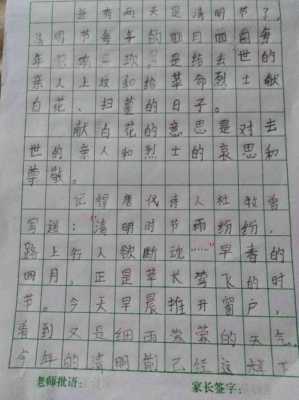 还有两天是清明节了，
清明节每年的四月四日每
年 是给去世的
亲人上坟和给革命烈士献
白花、扫墓的日子。
献白花的意思是对去
世的亲人和烈士的哀思和
尊敬。
记得唐代诗人杜牧曾
写道：“清明时节雨纷纷，
路上行人欲断魂……”早春的
四月，正是草长莺飞的时
节。今天早晨推开窗户，
看到又是细雨 的天气。
今年的清明节已经这样下
老师批语： 家长签字：